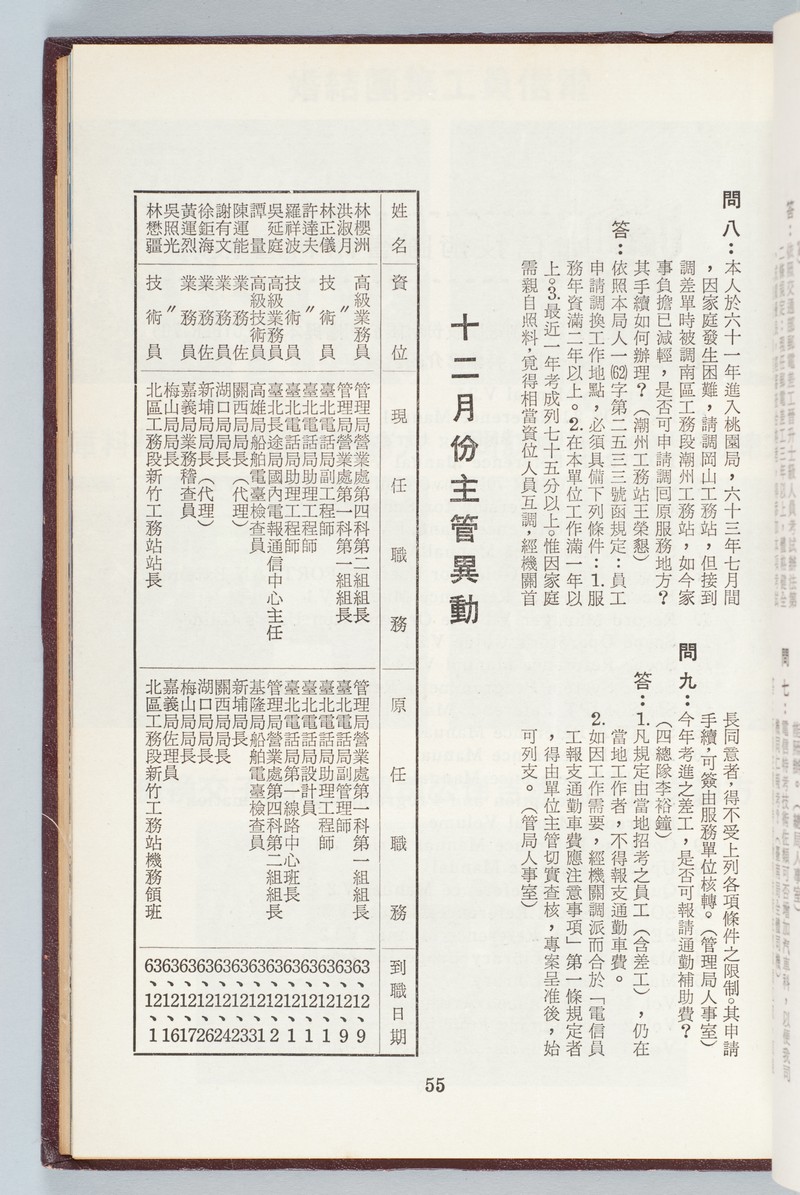 問八：本人於六十一年進入桃園局，六十三年七月間
，因家庭發生困難，請調岡山工務站，但接到
調差單時被調南區工務段潮州工務站，如今家
事負擔已減輕，是否可申請調回原服務地方？
其手續如何辦理？（潮州工務站王榮懇）
答：依照本局人一(62)字第二五三三號函規定：員工
申請調換工作地點，必須具備下列條件：1.服
務年資滿二年以上。2.在本單位工作滿一年以
上。3.最近一年考成列七十五分以上。惟因家庭
需親自照料，覓得相當資位人員互調，經機關首
長同意者，得不受上列各項條件之限制。其申請
手續，可簽由服務單位核轉。（管理局人事室）
問九：今年考進之差工，是否可報請通勤補助費？
（四總隊李裕鐘）
答：1.凡規定由當地招考之員工（含差工），仍在
當地工作者，不得報支通勤車費。
2.如因工作需要，經機關調派而合於「電信員
工報支通勤車費應注意事項」第一條規定者
，得由單位主管切實查核，專案呈准後，始
可列支。（管局人事室）
十二月份主管異動
姓名 資位 現任職務 原任職務 到職日期
林櫻洲 高級業務員 管理局營業處第四科第二組組長 管理局營業處第一科第一組組長 63、12、9
洪淑月 〃 管理局營業處第一科第一組組長 臺北電話局副管理師 63、12、9
林正儀 技術員 臺北電話局副工程師 臺北電話局助理工程師 63、12、1
許達夫 〃 臺北電話局助理工程師 臺北電話局設計員 63、12、1
羅祥波 技術員 臺北電話局助理工程師 臺北電話局第一線路中心班長 63、12、1
吳延庭 高級業務員 臺北長途局國內電報通信中心主任 管理局營業處第四科第二組組長 63、12、2
譚量 高級技術員 高雄局船舶電臺檢查員 基隆局船舶電臺檢查員 63、12、31
陳運能 業務佐 關西局局長（代理） 新埔局局長 63、12、23
謝有文 業務員 湖口局局長 關西局局長 63、12、24
徐鉅海 業務佐 新埔局局長（代理） 湖口局局長 63、12、26
黃運烈 業務員 嘉義局業務稽查員 梅山局局長 63、12、17
吳照光 〃 梅山局局長 嘉義局佐理員 63、12、16
林懋疆 技術員 北區工務段新竹工務站站長 北區工務段新竹工務站機務領班 63、12、1
55